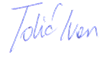 Tolić Ivan